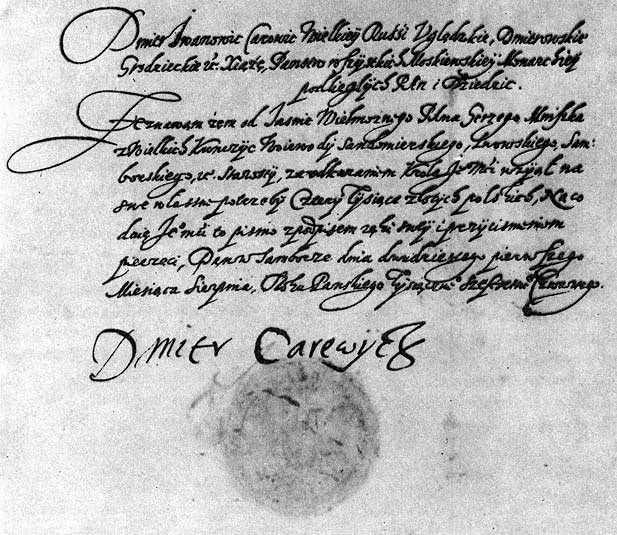 Dmitr Iwanowic Carowic Wielkiey Russi Uględzkie, Dmitrowskie
Grodzieckie &c. Xiążę, Panow wszystkich Moskiewskiey Monarchiey
podległych Pan i Dziedzic.
Zeznawam żem od Jaśnie Wielmożnego Pana Gerzego Mniszka
z Wielkich Kończyc Woiewody Sandomierskiego, Lwowskiego, Sam-
borskiego, &c. Starosty, za wskazaniem Króla Je Mći wziął na
swe własne potrzeby Cztery Tysiąca złotych polskich, Na co
daię Je mu to pismo z podpisem ręki swey i przyciśnieniem
pieczęci, Dan w Samborze dnia dwudziestego pierwszego
Miesiąca Sierpnia, Roku Panskiego Tysiącne° Szesetne° Czwartego.
Dmitr Carewycz